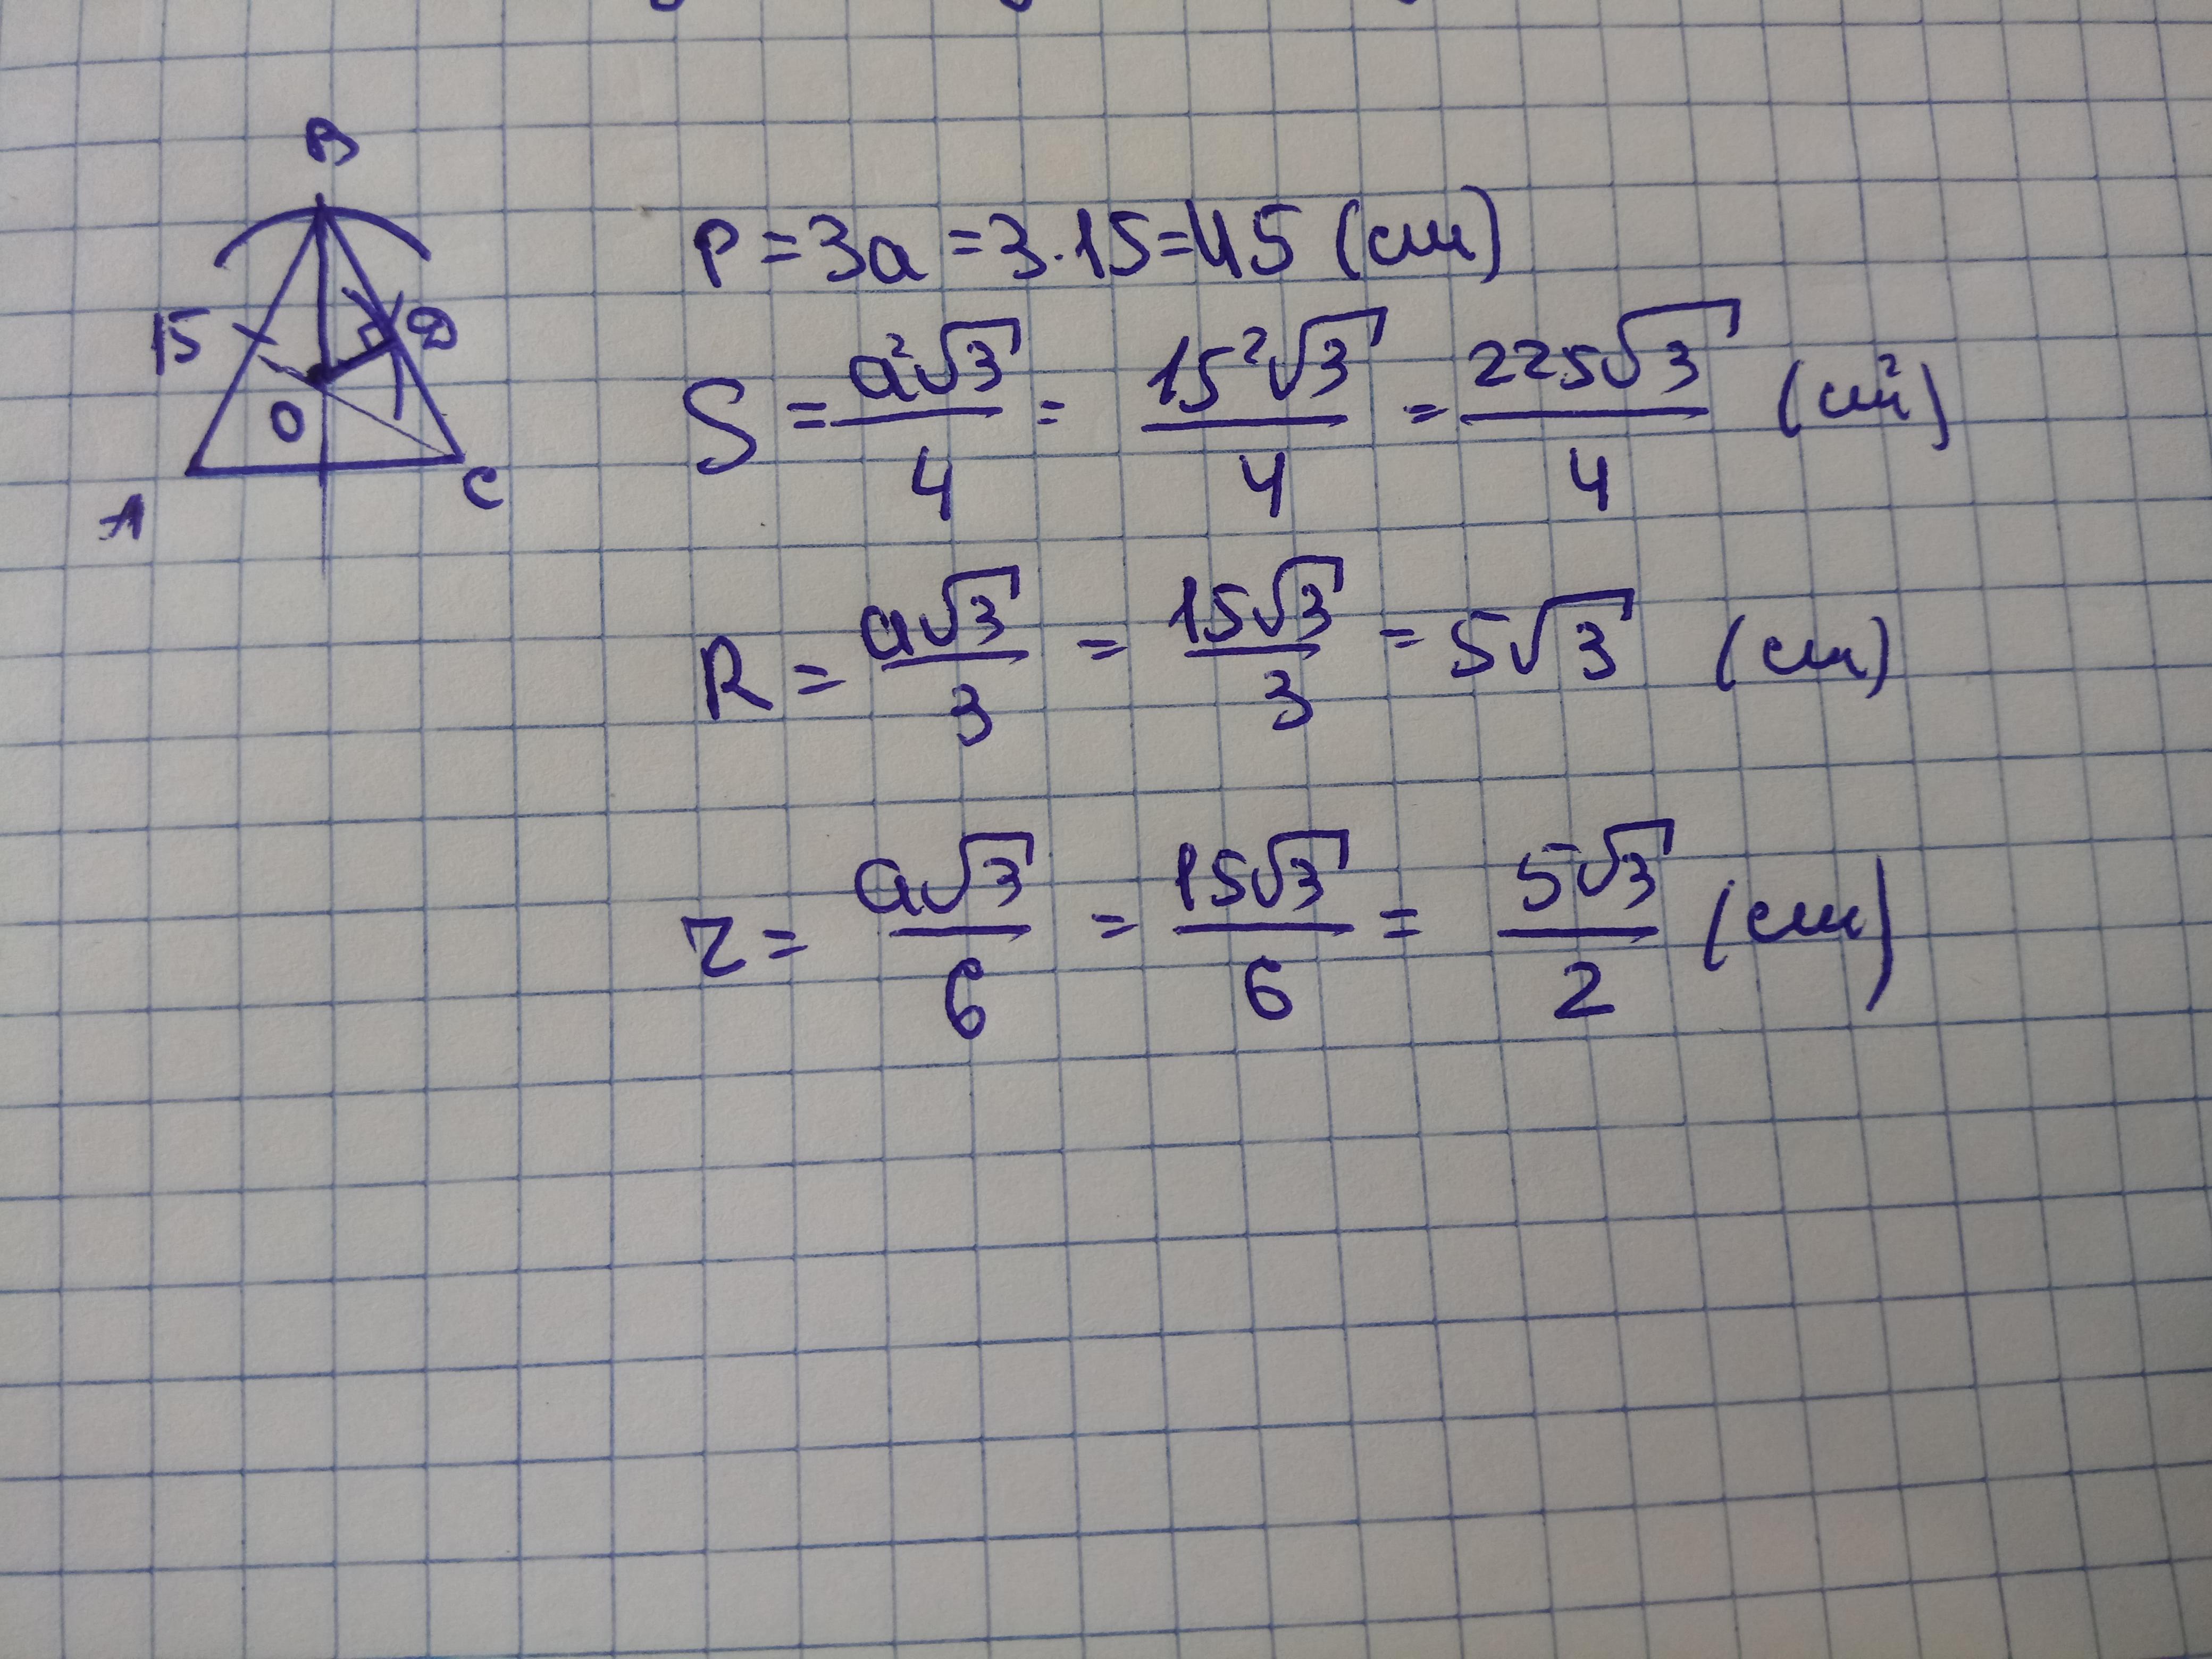 B
15
D
O
A
C
P = 3a = 3·15 = 45 (см)
S = a²√3/4 = 15²√3/4 = 225√3/4 (см²)
R = a√3/3 = 15√3/3 = 5√3 (см)
r = a√3/6 = 15√3/6 = 5√3/2 (см)